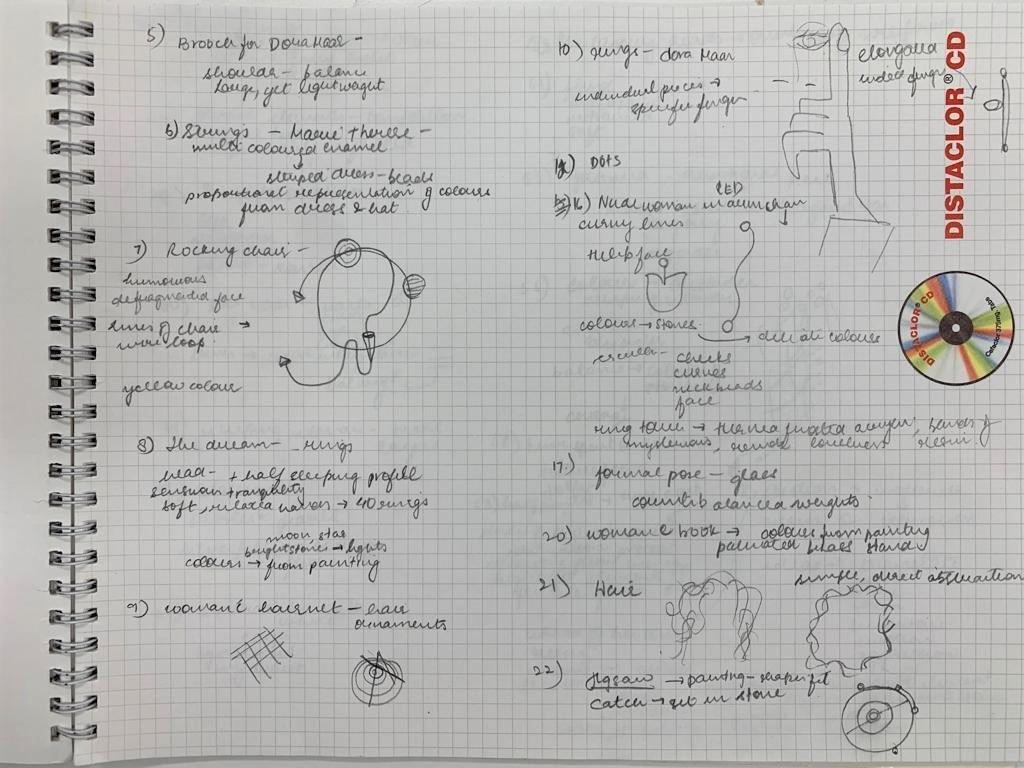 5) Brooch for Dora Maar -
shoulder - balance
large, yet lightweight
6) Strings - Marie Therese -
multi coloured enamel
striped dress - beads
proportional representation of colours
from dress & hat.
7) Rocking chair -
humorous
defragmented face
lines of chair →
wire loop.
yellow colour
8) The dream - rings
head - + half sleeping profile
sensuous + tranquility
soft, relaxed → 40 rings
moon star
bright stone → lights
colours → from painting
9) woman & hairnet - hair
ornaments
10) rings - dora Maar
individual pieces →
specific finger
elongated
index finger
DOTS
16) Nude woman in armchair
RED
curvy lines
tulip face
colours → stones.
→ delicate colours
circular - cheeks
curves
neck beads
face
ring
mysterious, resin.
17.) formal pose - glass
counterbalanced weights.
20) woman & book → colours from painting
patinated brass stand
21) Hair
simple, direct abstraction
22) Jigsaw → painting - shapes fit
catch → set in stone
DISTACLOR® CD
DISTACLOR® CD